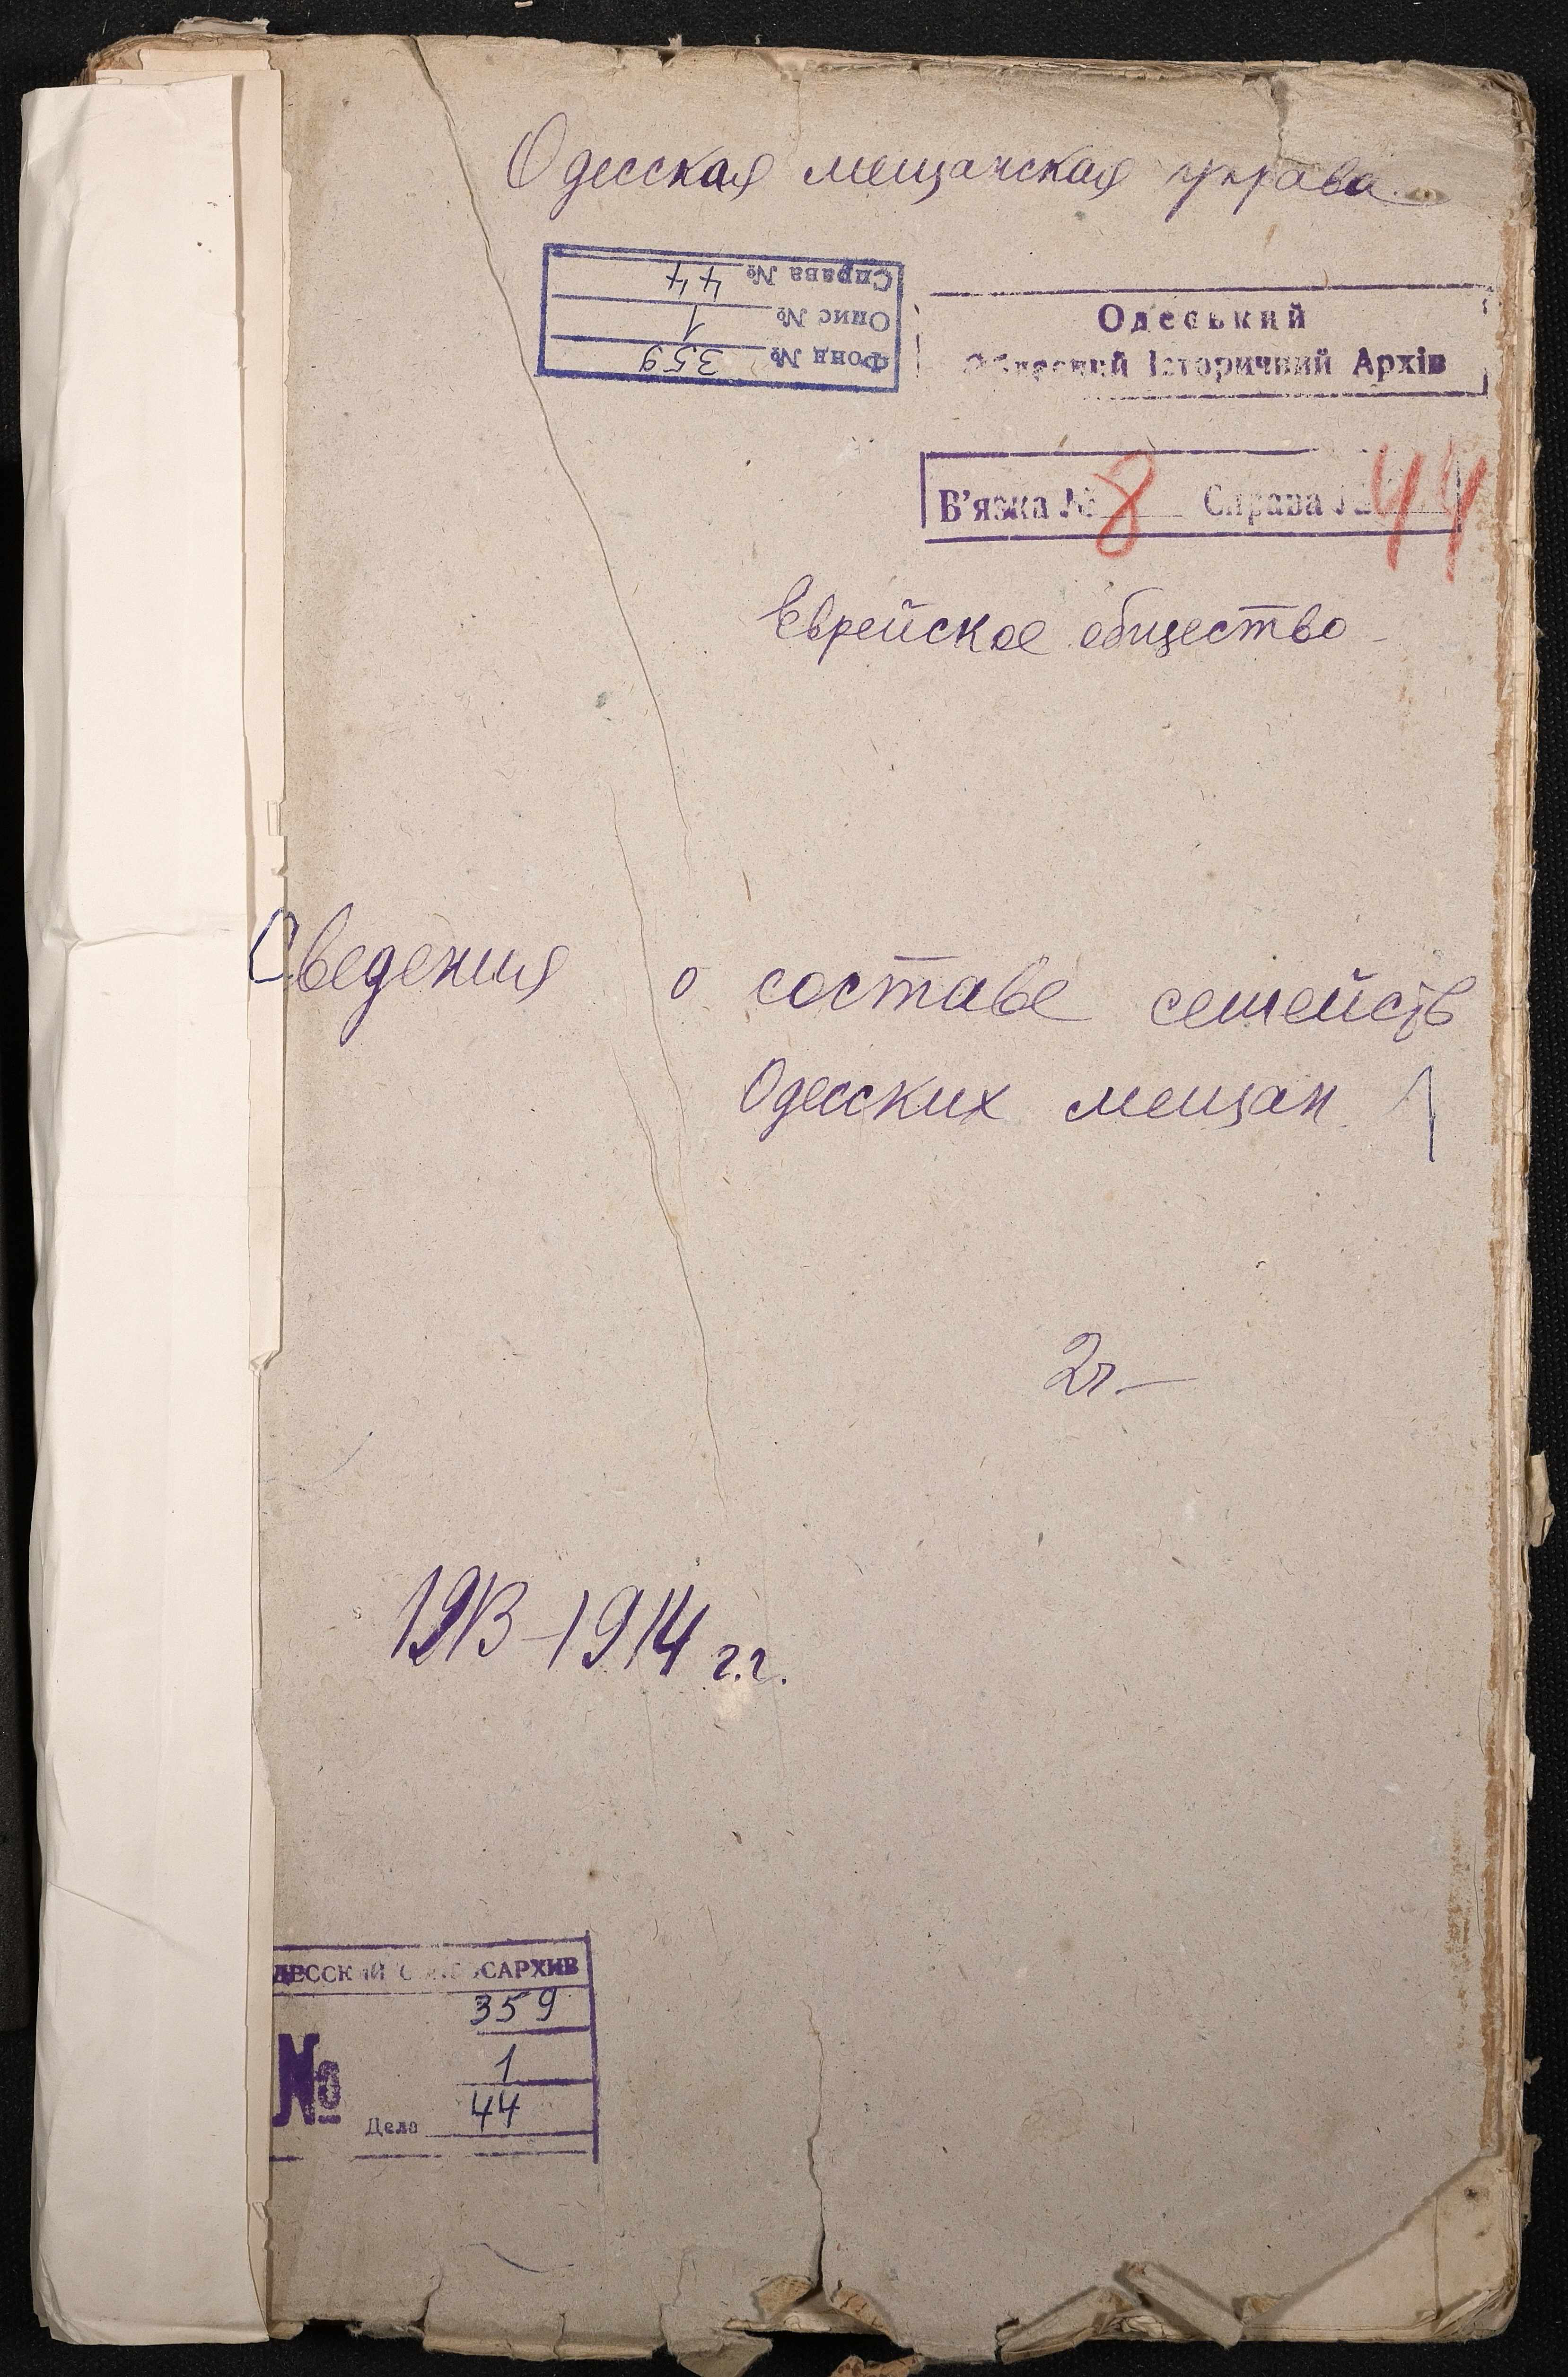 Одесская мещанская управа
Фонд № 359
Опис № 1
Справа № 44
Одеський
Обласний Історичний Архів
В'язка № 8 Справа № 44
Еврейское общество
Сведения о составе семейств
Одесских мещан
1913-1914 г.г.
359
№ 1
Дело 44